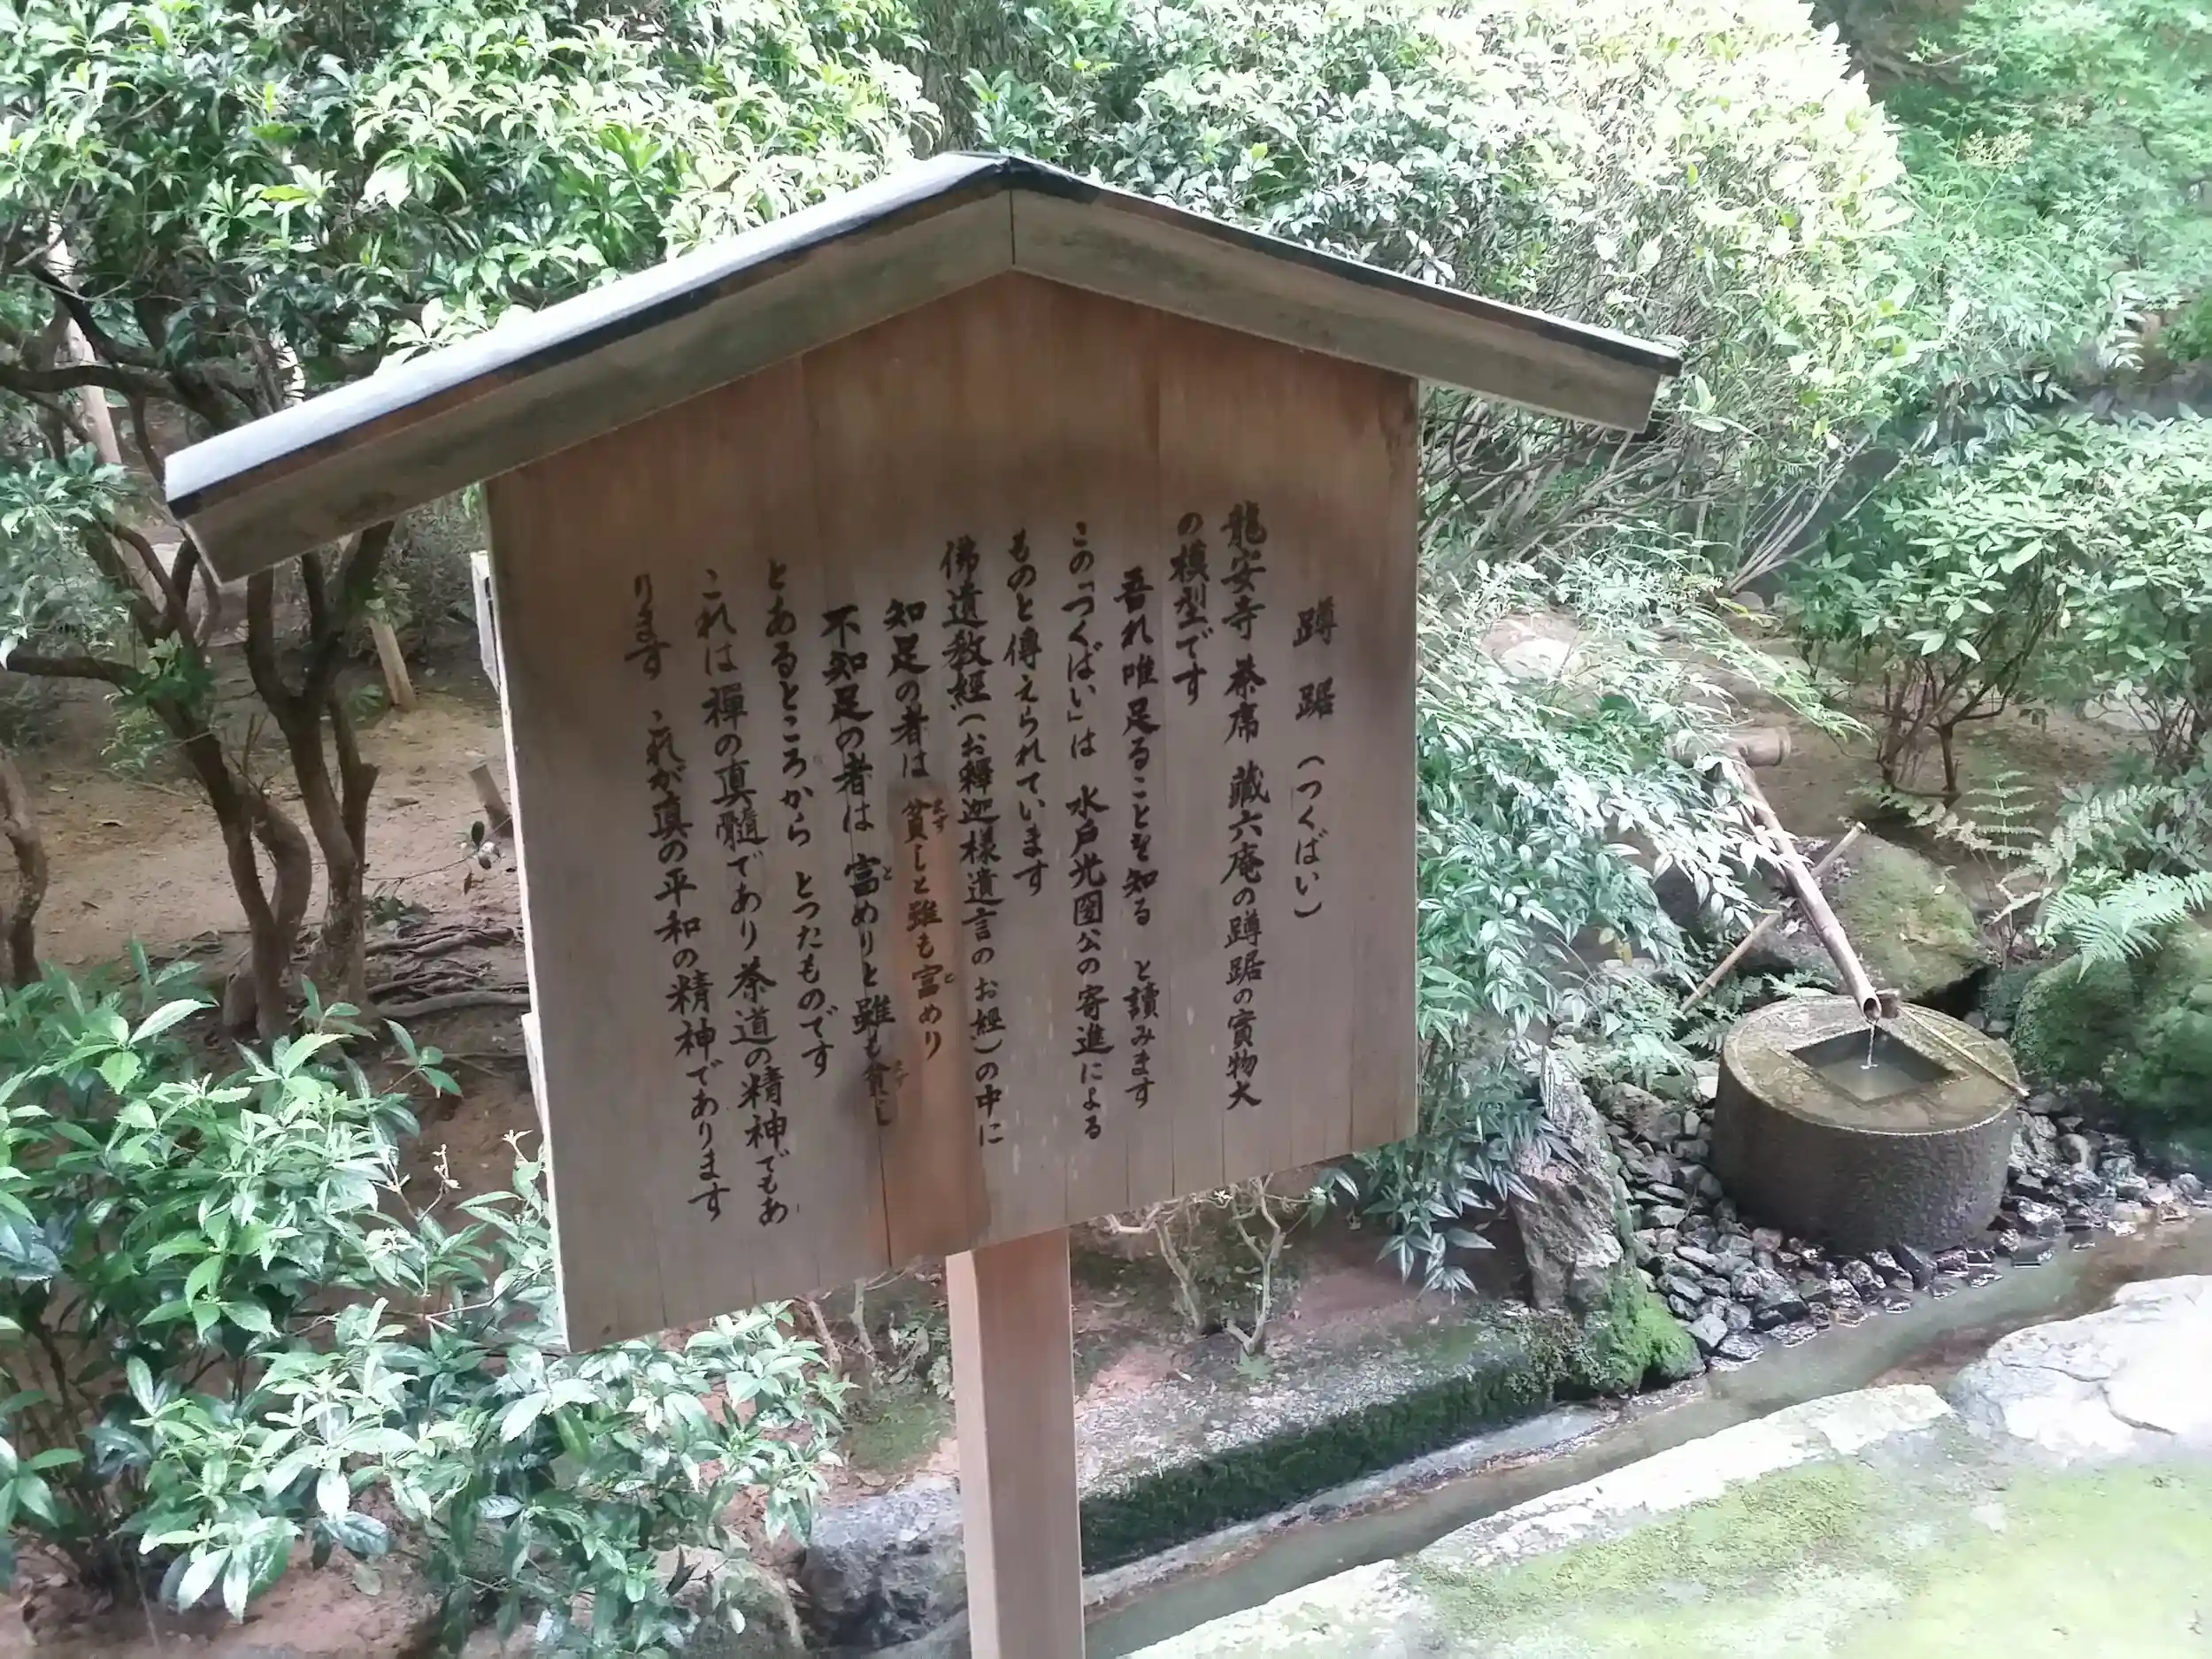 蹲踞（つくばい）
龍安寺 茶席 蔵六庵の蹲踞の實物大
の模型です
吾れ唯足ることを知る と讀みます
この「つくばい」は 水戸光圀公の寄進による
ものと傳えられています
佛遺教經（お釋迦様遺言のお經）の中に
知足の者は 貧しと雖も富めり
不知足の者は 富めりと雖も貧し
とあるところから とつたものです
これは禅の真髓であり茶道の精神でもあ
ります これが真の平和の精神であります